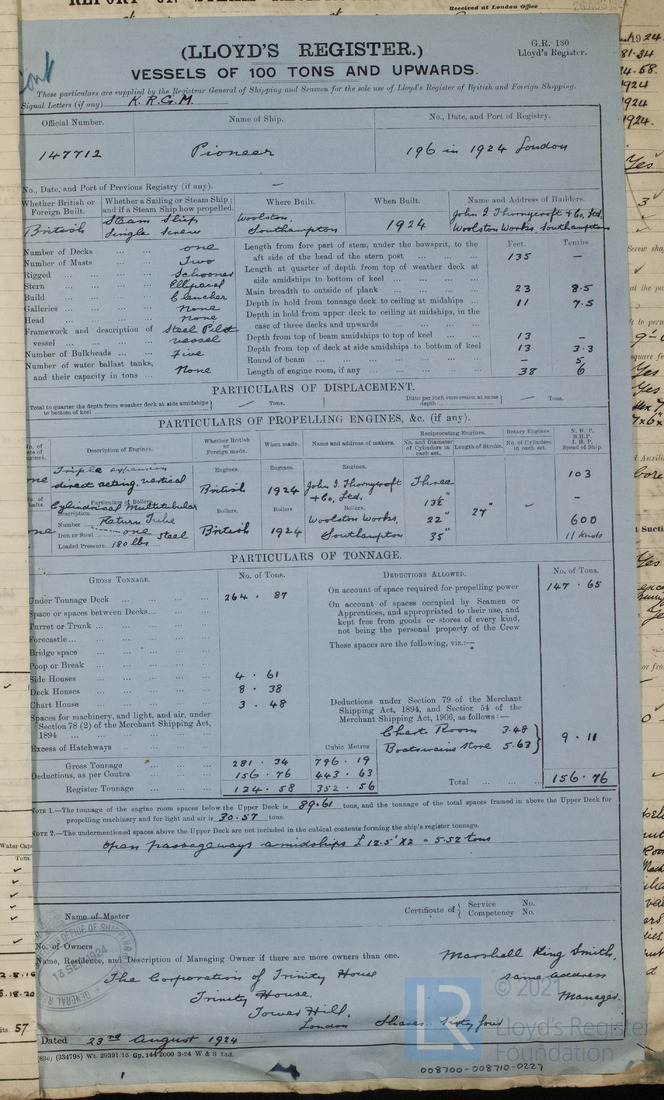 Received at London Office
(LLOYD'S REGISTER.)
G.R. 130
Lloyd's Register.
VESSELS OF 100 TONS AND UPWARDS.
These particulars are supplied by the Registrar General of Shipping and Seamen for the sole use of Lloyd's Register of British and Foreign Shipping.
Signal Letters (if any) K.R.G.M.
Official Number. Name of Ship. No., Date, and Port of Registry.
147712 Pioneer 196 in 1924 London
No., Date, and Port of Previous Registry (if any). —
Whether British or Foreign Built. Whether a Sailing or Steam Ship; and if a Steam Ship how propelled. Where Built. When Built. Name and Address of Builders.
British Steam Ship Single Screw Woolston, Southampton 1924 John I Thornycroft & Co, Ltd. Woolston Works, Southampton
Number of Decks one
Number of Masts Two
Rigged Schooner
Stern Elliptical
Build Clencher
Galleries none
Head none
Framework and description of vessel Steel Pilot vessel
Number of Bulkheads Five
Number of water ballast tanks, and their capacity in tons None
Feet. Tenths
Length from fore part of stem, under the bowsprit, to the aft side of the head of the stern post 135 —
Length at quarter of depth from top of weather deck at side amidships to bottom of keel
Main breadth to outside of plank 23 8.5
Depth in hold from tonnage deck to ceiling at midships 11 7.5
Depth in hold from upper deck to ceiling at midships, in the case of three decks and upwards
Depth from top of beam amidships to top of keel 13 —
Depth from top of deck at side amidships to bottom of keel 13 3.3
Round of beam — 5
Length of engine room, if any 38 6
PARTICULARS OF DISPLACEMENT.
Total to quarter the depth from weather deck at side amidships to bottom of keel — Tons. Ditto per inch immersion at same depth — Tons.
PARTICULARS OF PROPELLING ENGINES, &c. (if any).
Description of Engines. Whether British or Foreign made. When made. Name and address of makers. Reciprocating Engines. Rotary Engines
No. and Diameter of Cylinders in each set. Length of Stroke. No. of Cylinders in each set. N.H.P. B.H.P. I.H.P. Speed of Ship.
Triple expansion direct acting, vertical
Engines. British Engines. 1924 Engines. John I. Thornycroft & Co, Ltd.
Three 13½" 22" 35" 27" — 103 — 600 11 Knots
Particulars of Boilers.
Description Cylindrical Multitubular Return Tube
Number one
Iron or Steel Steel
Loaded Pressure 180 lbs
Boilers. British Boilers 1924 Boilers. Woolston Works, Southampton
PARTICULARS OF TONNAGE.
GROSS TONNAGE. No. of Tons.
Under Tonnage Deck 264 . 87
Space or spaces between Decks
Turret or Trunk
Forecastle
Bridge space
Poop or Break
Side Houses 4 . 61
Deck Houses 8 . 38
Chart House 3 . 48
Spaces for machinery, and light, and air, under Section 78 (2) of the Merchant Shipping Act, 1894
Excess of Hatchways
Cubic Metres
Gross Tonnage 281 . 34 796 . 19
Deductions, as per Contra 156 . 76 443 . 63
Register Tonnage 124 . 58 352 . 56
DEDUCTIONS ALLOWED. No. of Tons.
On account of space required for propelling power 147 . 65
On account of spaces occupied by Seamen or Apprentices, and appropriated to their use, and kept free from goods or stores of every kind, not being the personal property of the Crew
These spaces are the following, viz.:—
Deductions under Section 79 of the Merchant Shipping Act, 1894, and Section 54 of the Merchant Shipping Act, 1906, as follows:—
Chart Room 3.48
Boatswains store 5.63 } 9 . 11
Total 156 . 76
NOTE 1.—The tonnage of the engine room spaces below the Upper Deck is 89.61 tons, and the tonnage of the total spaces framed in above the Upper Deck for
propelling machinery and for light and air is 30.57 tons.
NOTE 2.—The undermentioned spaces above the Upper Deck are not included in the cubical contents forming the ship's register tonnage.
Open passageways amidships £ 12.5' x 2 = 5.52 tons
Name of Master
Certificate of { Service No.
Competency No.
No. of Owners
Name, Residence, and Description of Managing Owner if there are more owners than one.
Marshall King Smith,
The Corporation of Trinity House
same address
Trinity House,
Manager.
Tower Hill,
London Shares Sixty four
Dated 23rd August 1924
(836) (334798) Wt. 29391/15 Gp. 144 2000 3-24 W & S Ltd.
LR
© 2021
Lloyd's Register
Foundation
008700-008710-0227